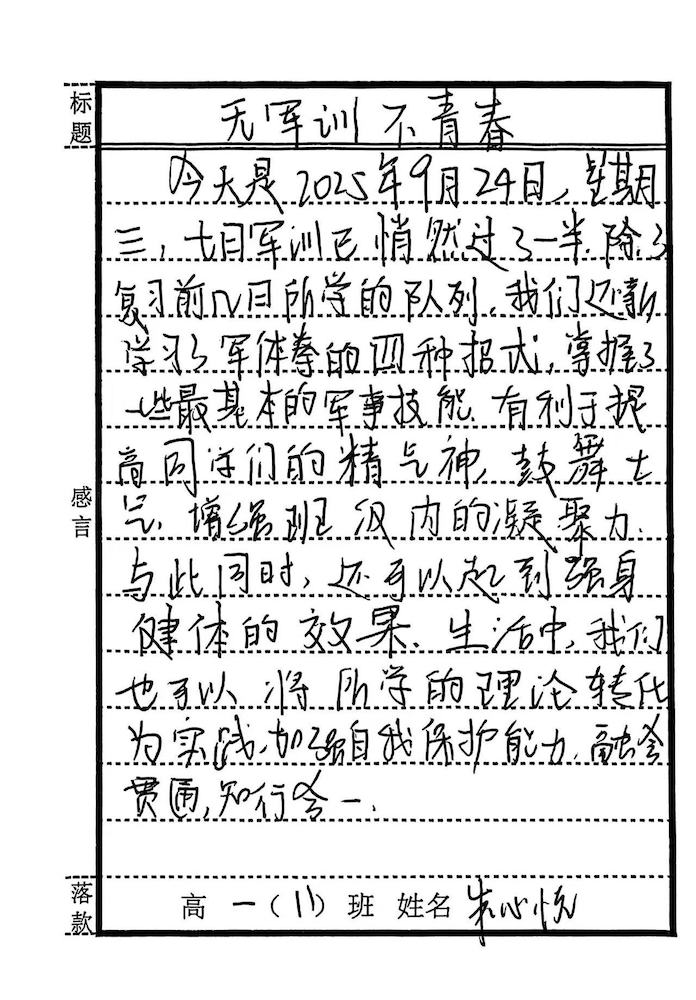 标题
无军训 不青春
今天是2025年9月24日,星期
三,七日军训已悄然过了一半.除了
复习前几日所学的队列,我们还新
学习了军体拳的四种招式,掌握了
一些最基本的军事技能.有利于提
高同学们的精气神,鼓舞士
气.增强班级内的凝聚力.
与此同时,还可以起到强身
健体的效果.生活中,我们
也可以将所学的理论转化
为实践.加强自我保护能力.融会
贯通,知行合一.
感言
落款
高一(11)班 姓名 朱心悦